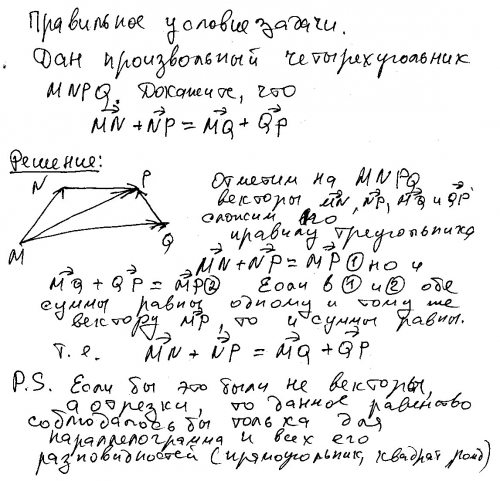 Правильное условие задачи.
. Дан произвольный четырехугольник
MNPQ. Докажите, что
MN + NP = MQ + QP
Решение:
N P
M Q
Отметим на MNPQ
векторы MN, NP, MQ и QP.
сложим по
правилу треугольника
MN + NP = MP ① но и
MQ + QP = MP ② Если в ① и ② обе
суммы равны одному и тому же
вектору MP, то и суммы равны.
Т.е. MN + NP = MQ + QP
P.S. Если бы это были не векторы,
а отрезки, то данное равенство
соблюдалось бы только для
параллелограмма и всех его
разновидностей (прямоугольник, квадрат ромб)